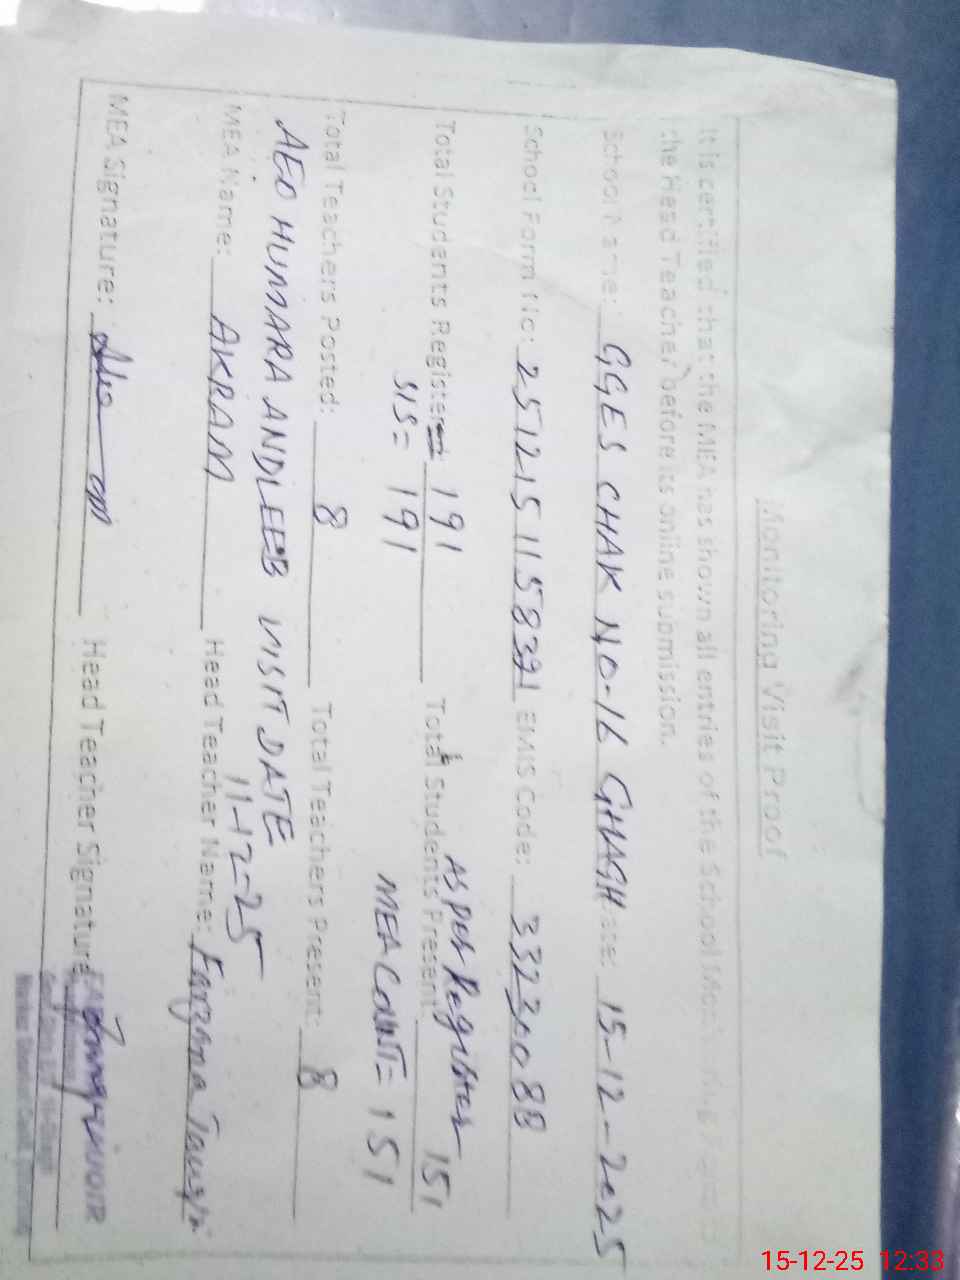 Monitoring Visit Proof
It is certified that the MEA has shown all entries of the School Monitoring
the Head Teacher before its online submission.
School Name: GGES CHAK NO-16 GHAGH Date: 15-12-2025
School Form No: 2512151158391 EMIS Code: 33230088
As per Register
Total Students Registered: 191 Total Students Present: 151
SIS = 191 MEA COUNT = 151
Total Teachers Posted: 8 Total Teachers Present: 8
AEO HUMARA ANDLEEB VISIT DATE
11-12-25
MEA Name: AKRAM Head Teacher Name: Farzana
MEA Signature: Head Teacher Signature:
15-12-25 12:33